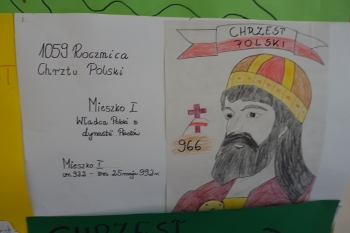 1059 Rocznica
Chrztu Polski
Mieszko I
Władca Polski z
dynastii Piastów
Mieszko I
ur. 922 - zm. 25 maja 992 r.
CHRZEST
POLSKI
966
CHRZEST